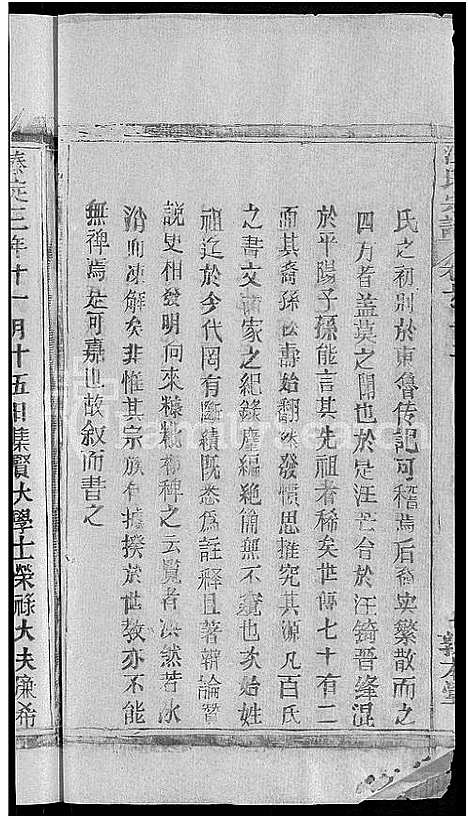 汪氏宗譜
氏之初別於東魯传記可稽焉后裔寔繁散而之
四方者盖莫之聞也於是汪芒合於汪錡晋绛混
於平陽子孫能言其先祖者稀矣世傳七十有二
而其裔孫松壽始翻然發憤思推究其源凡百氏
之書文献家之紀錄摩編絶簡無不竟也玄始姓
祖迄於今代罔有断續既悉為註釋且著辯論質
説更相發明向來糠粃稊稗之云覧者涣然若氷
消而凍解矣非惟其宗族有據揆於世教亦不能
無裨焉是可嘉也故叙而書之
泰定三年十一月十五日集賢大學士榮祿大夫廉希